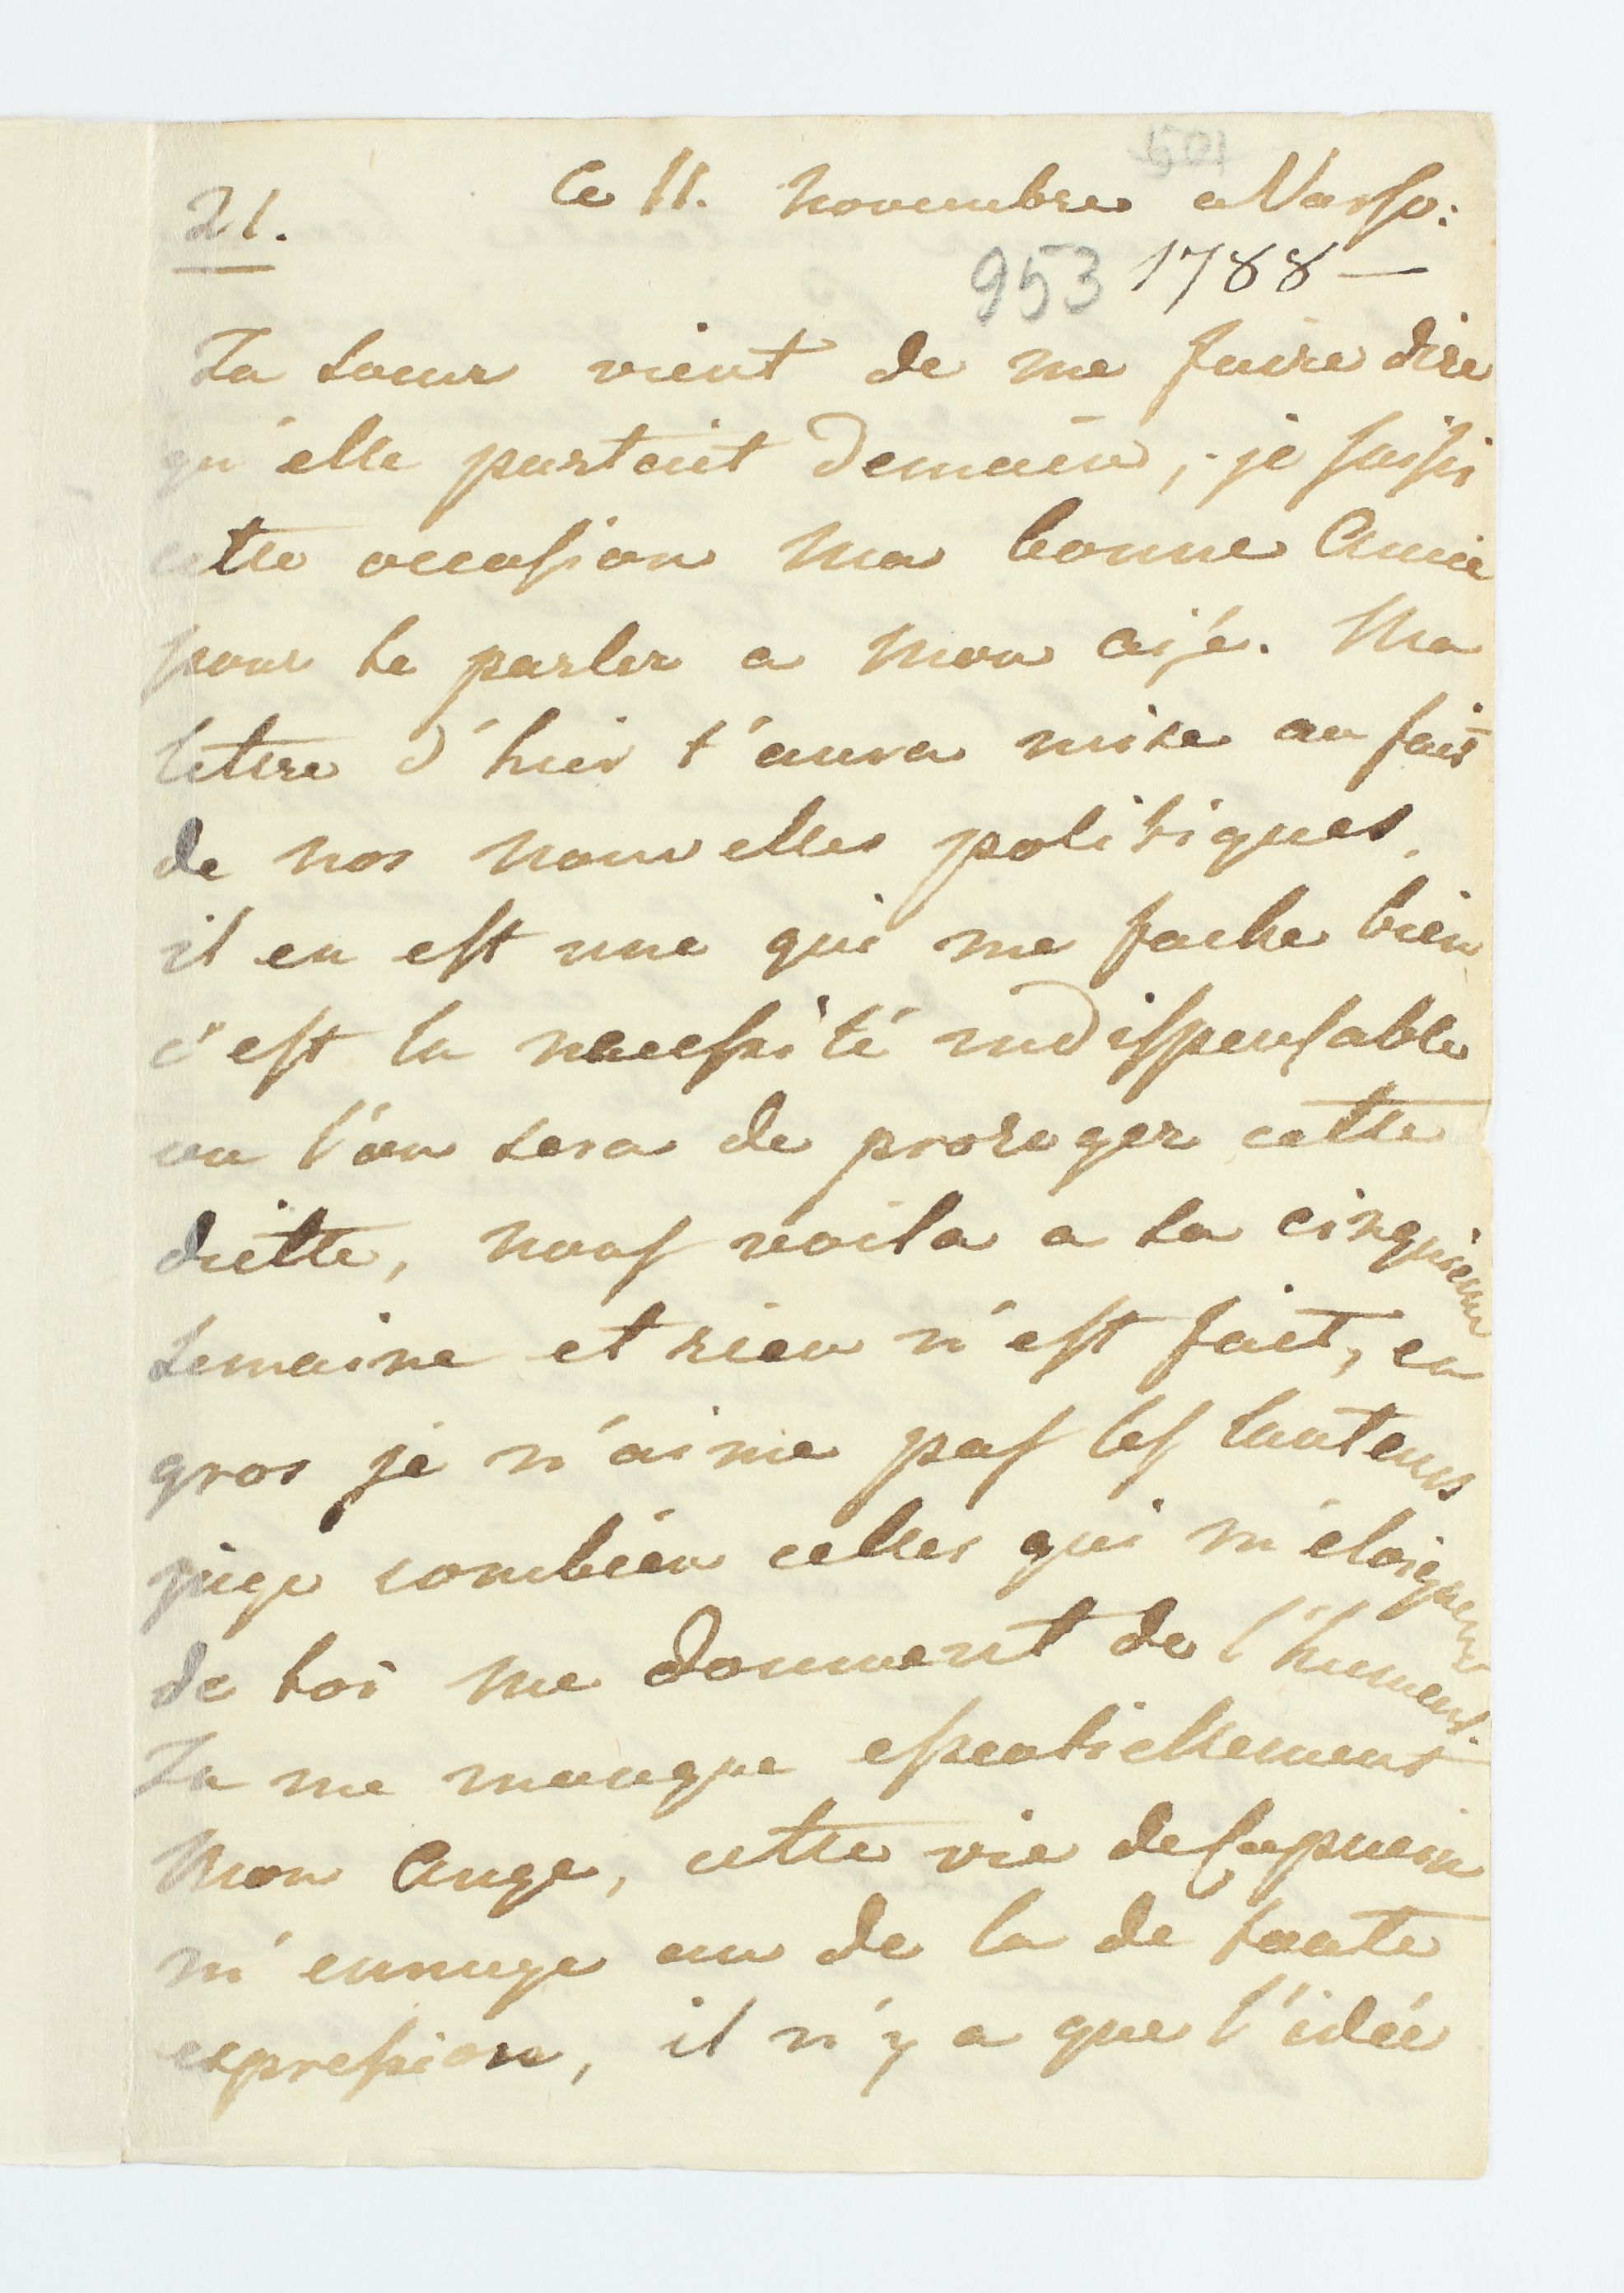 501
21.
Ce 11. Novembre a Varso:
953 1788 —
Ta soeur vient de me faire dire
qu'elle partoit demain, je saisis
cette occasion Ma bonne Amie
pour te parler a Mon aisé. Ma
lettre d'hier t'aura mise au fait
de nos nouvelles politiques,
il en est une qui me fache bien
c'est la necessité indispensable
ou l'on sera de proroger cette
diette, nous voila a la cinquieme
semaine et rien n'est fait, en
gros je n'aime pas les lenteurs
juge combien celles qui m'éloignent
de toi me donnent de l'humeur.
Tu me manque essentiellement
Mon Ange, cette vie de Capucin
m'ennuye au de la de toute
expression, il n'y a que l'idée